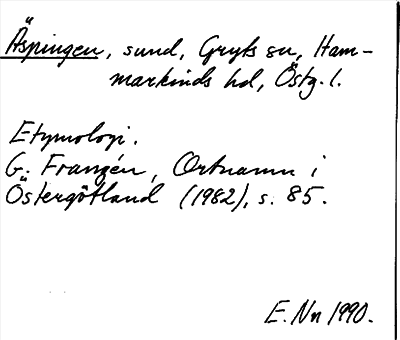 Äspingen, sund, Gryts sn, Ham-
markinds hd, Östg. l.
Etymologi.
G. Franzén, Ortnamn i
Östergötland (1982), s. 85.
E. Nn 1990.